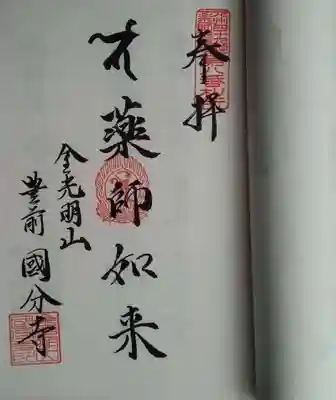 奉拝
薬師如来
金光明山
豊前國分寺